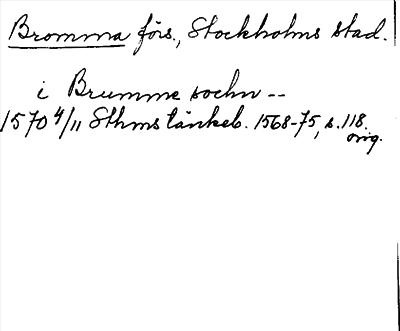 Bromma förs., Stockholms stad.
i Brumme sochn --
1570 4/11 Sthms tänkeb. 1568-75, s. 118.
orig.